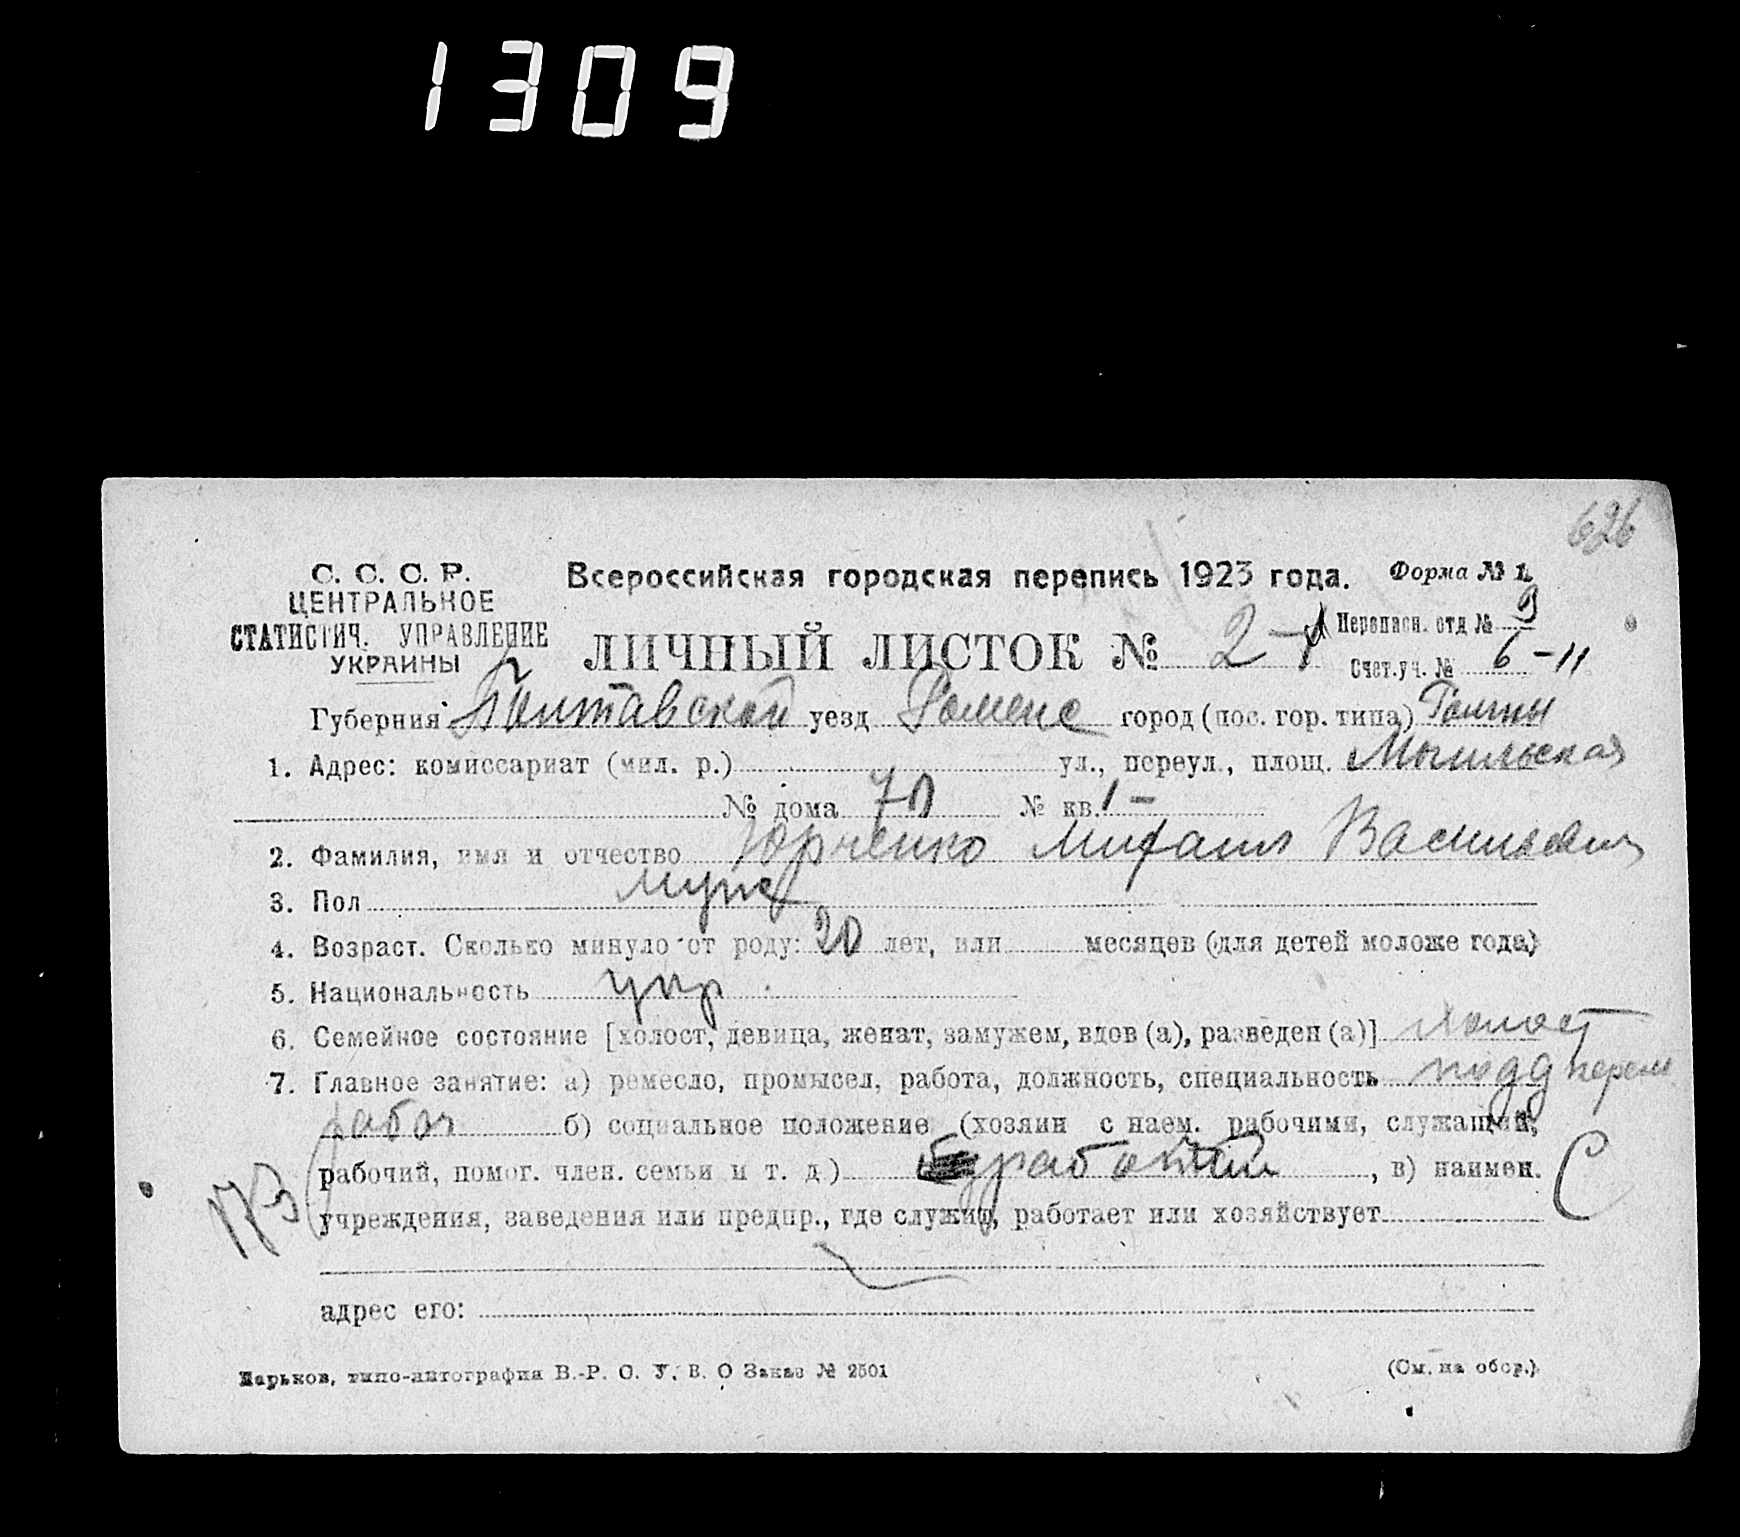 1309
626
С. С. С. Р.
ЦЕНТРАЛЬНОЕ
СТАТИСТИЧ. УПРАВЛЕНИЕ
УКРАИНЫ
Всероссийская городская перепись 1923 года.
Форма № 1
ЛИЧНЫЙ ЛИСТОК № 2
Переписн. отд № 9
Счет.уч. № 6-11
Губерния Полтавской уезд Роменс город (пос. гор. типа) Ромны
1. Адрес: комиссариат (мил. р.) ул., переул., площ.
№ дома 70 № кв. 1-
2. Фамилия, имя и отчество Юрченко Михаил Васильевич
3. Пол муж
4. Возраст. Сколько минуло от роду: 20 лет, или месяцев (для детей моложе года)
5. Национальность укр
6. Семейное состояние [холост, девица, женат, замужем, вдов (а), разведен (а)] холост
7. Главное занятие: а) ремесло, промысел, работа, должность, специальность
б) социальное положение (хозяин с наем. рабочими, служащий,
рабочий, помог. член. семьи и т. д.) , в) наимен.
С
учреждения, заведения или предпр., где служит, работает или хозяйствует
адрес его:
Харьков, типо-литография В.-Р. С. У. В. О Заказ № 2501
(См. на обор.)